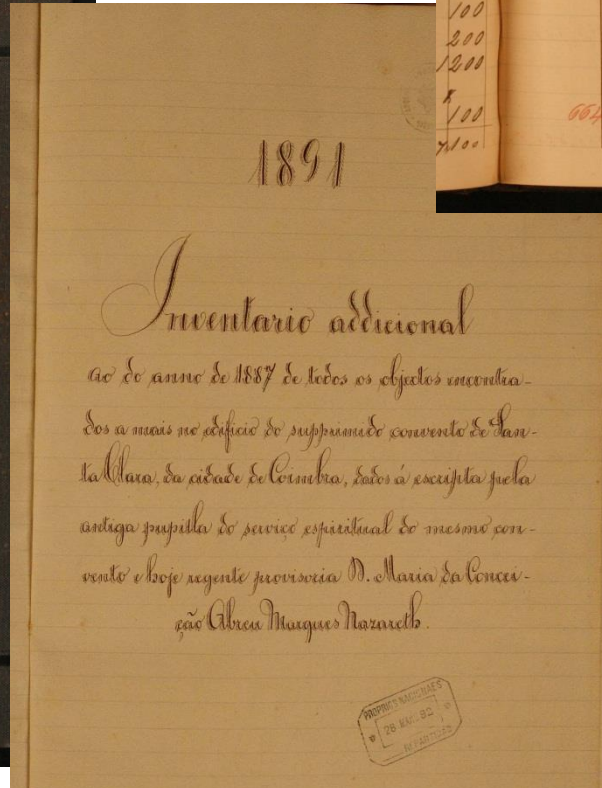 100
200
1200
100
7100
664
1891
Inventario addicional
ao do anno de 1887 de todos os objectos encontra-
dos a mais no edificio do supprimido convento de San-
ta Clara, da cidade de Coimbra, dados á escripta pela
antiga pupilla do serviço espiritual do mesmo con-
vento e hoje regente provisoria D. Maria da Concei-
ção Abreu Marques Nazareth.
PROPRIOS NACIONAES
28 MAI. 92
REPARTIÇÃO